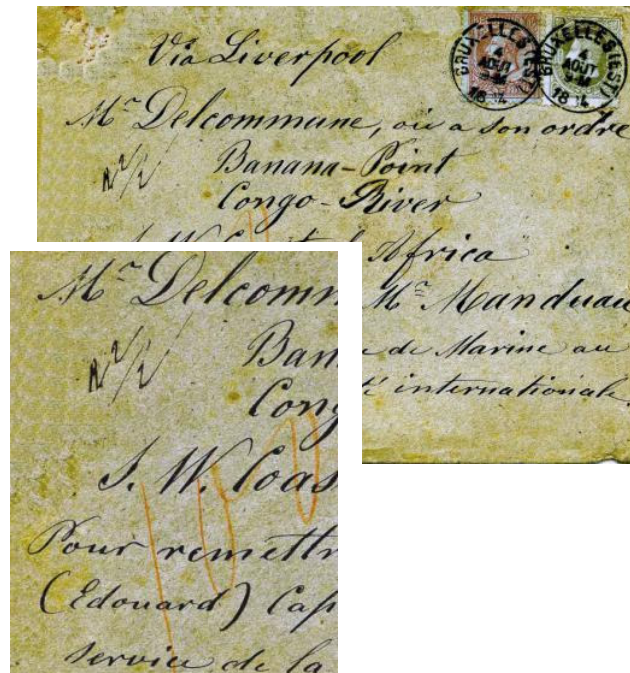 Via Liverpool
BRUXELLES (EST)
4
AOUT
BRUXELLES (EST)
4
AOUT
Mr Delcommune, où a son ordre
Banana-Point
Congo-River
Africa
Mr Manduau
de Marine au
internationale
Mr Delcomm
Ban
Cong
S. W. Coas
Pour remettr
(Edouard) Cap
service de la